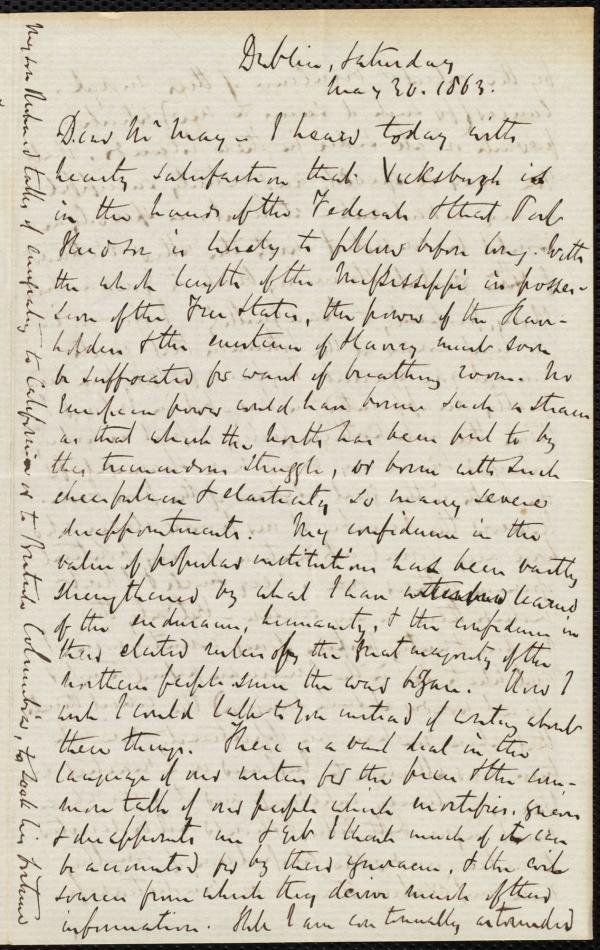 Dublin, Saturday
May 30. 1863.
Dear Mr May - I heard today with
hearty satisfaction that Vicksburgh is
in the hands of the Federals & that Port
Hudson is likely to follow before long. With
the whole length of the Mississippi in posses-
sion of the Free States, the power of the Slave-
holders & the existence of Slavery must soon
be suffocated for want of breathing room. No
European power could have borne such a strain
as that which the North has been put to by
this tremendous struggle, or borne with such
cheerfulness & elasticity so many severe
disappointments. My confidence in the
value of popular institutions has been vastly
strengthened by what I have learned
of the endurance, humanity, & the confidence in
their elected rulers of the great majority of the
Northern people since the war began. How I
wish I could talk to you instead of writing about
these things. There is a vast deal in the
language of our writers for the press & the com-
mon talk of our people which mortifies, grieves
& disappoints me & yet I think much of it can
be accounted for by their ignorance, & the evil
sources from which they derive much of their
information. Still I am continually astounded
My son Richard talks of emigrating to California or to British Columbia, to seek his fortune